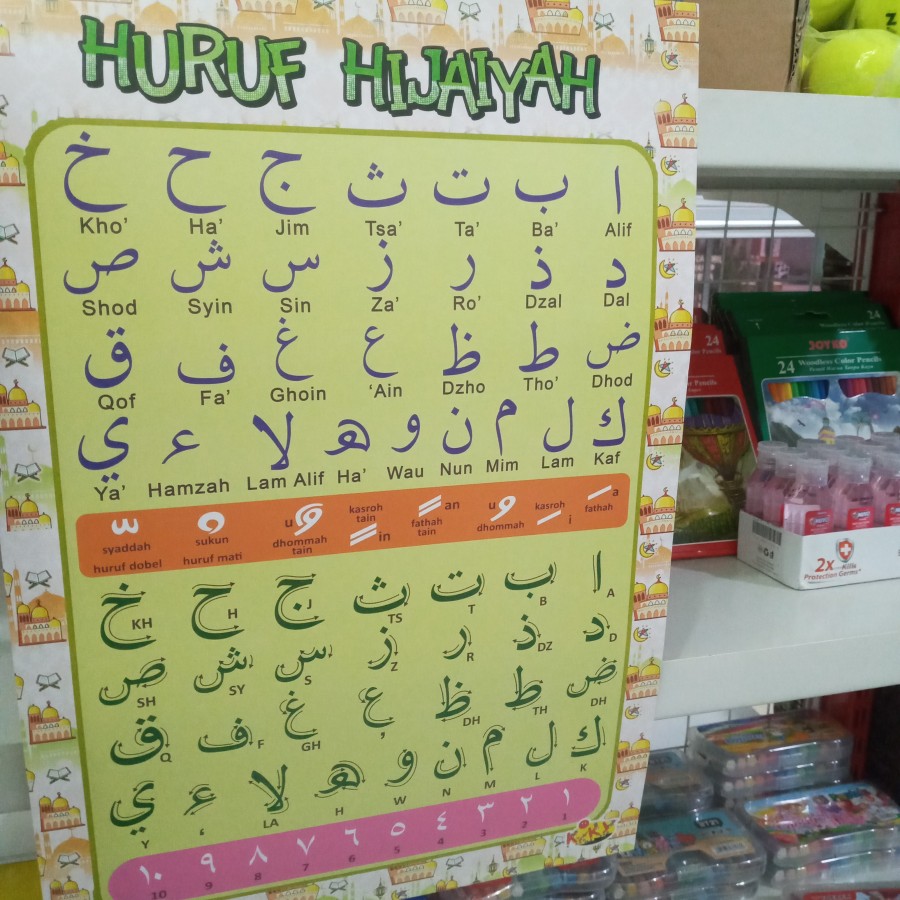 HURUF HIJAIYAH
ا ب ت ث ج ح خ
Alif Ba' Ta' Tsa' Jim Ha' Kho'
د ذ ر ز س ش ص
Dal Dzal Ro' Za' Sin Syin Shod
ض ط ظ ع غ ف ق
Dhod Tho' Dzho 'Ain Ghoin Fa' Qof
ك ل م ن و ه لا ء ي
Kaf Lam Mim Nun Wau Ha' Lam Alif Hamzah Ya'
a fathah
i kasroh
u dhommah
an fathah tain
in kasroh tain
u dhommah tain
sukun huruf mati
syaddah huruf dobel
ا ب ت ث ج ح خ
A B T TS J H KH
د ذ ر ز س ش ص
D DZ R Z S SY SH
ض ط ظ ع غ ف ق
DH TH DH ' GH F Q
ك ل م ن و ه لا ء ي
K L M N W H LA ' Y
١ ٢ ٣ ٤ ٥ ٦ ٧ ٨ ٩ ١٠
1 2 3 4 5 6 7 8 9 10
KIKY
24
Pencils
24
JOYKO
24 Woodless Color Pencils
2x Kills
Protection Germs